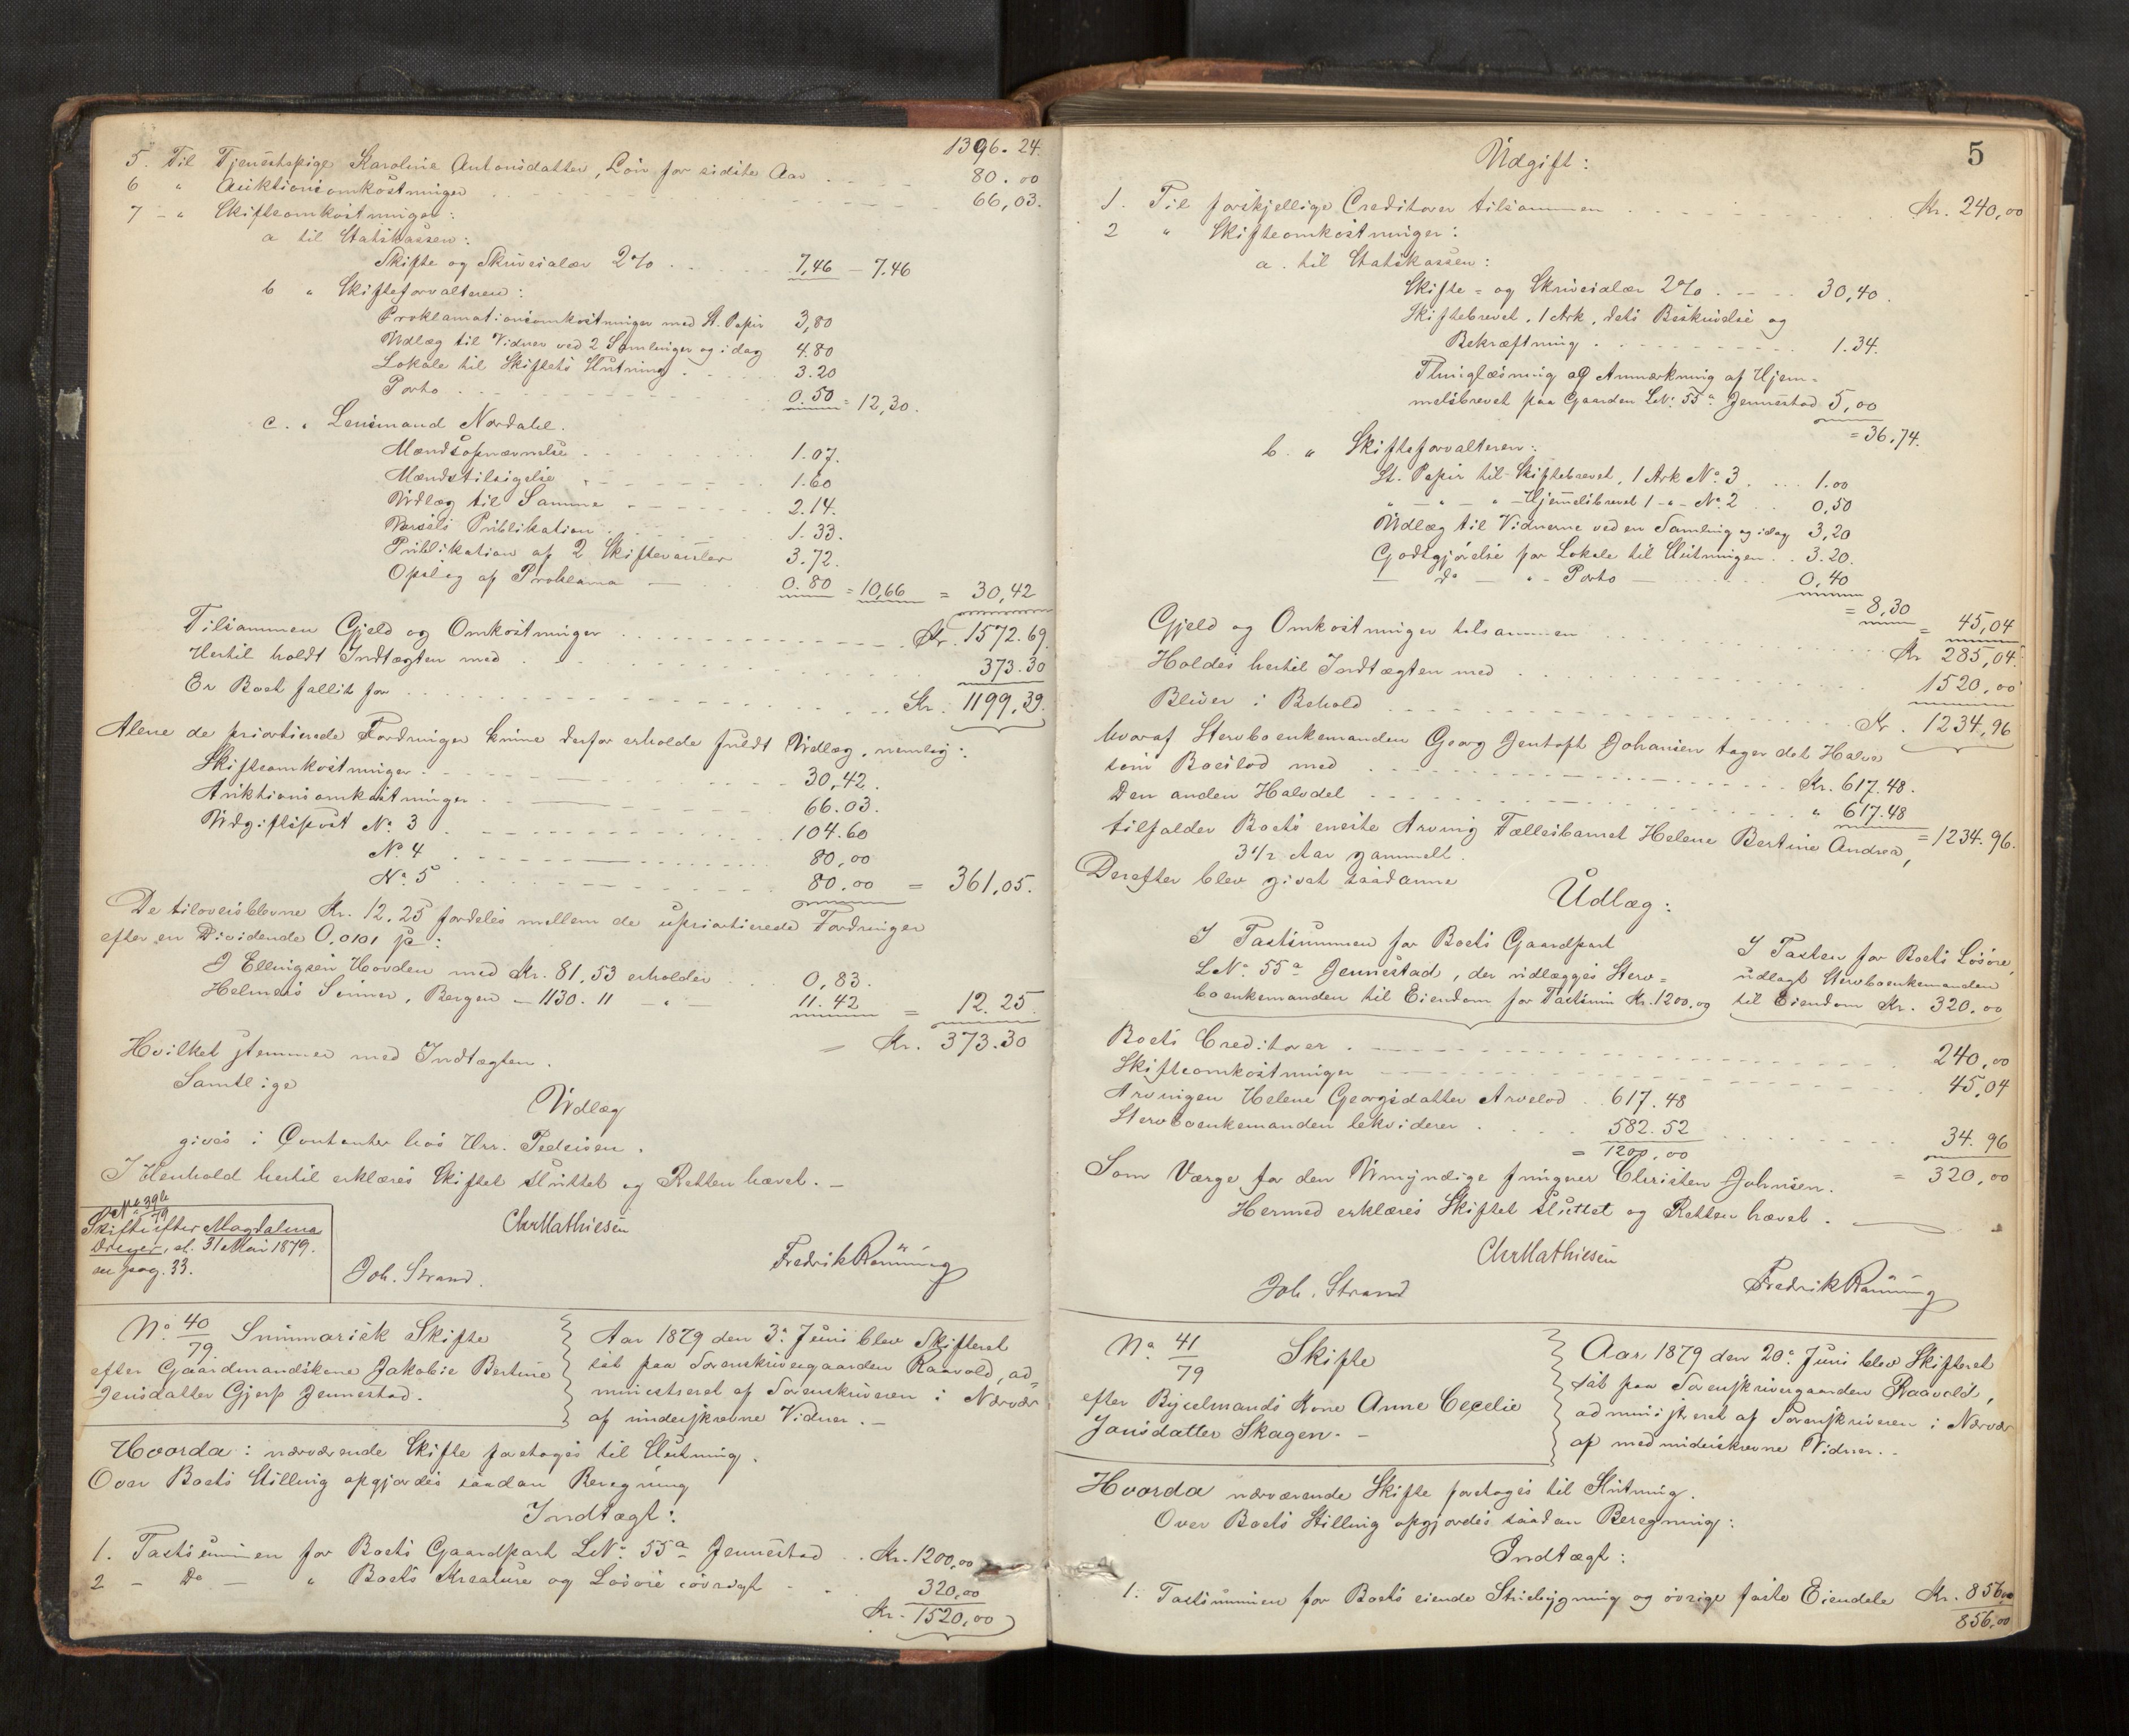 1396.24.
5. Til Tjenestepige Karoline Antonsdatter, Løn for sidste Aar . . . 80.00
6 " Auktionsomkostninger . . . 66,03.
7 - " Skifteomkostninger:
a til Statskassen:
Skifte og Skriversalær 2% . . . 7,46 — 7.46
b " Skifteforvalteren:
Proklamationsomkostninger med St. Papir 3,80
Udlæg til Vidner ved 2 Samlinger og i dag 4.80
Lokale til Skiftets Slutning . . . 3.20
Porto . . . 0.50 = 12,30.
c. " Lensmand Nordahl.
Mændsopnævnelse . . . 1.07.
Mændstilsigelse . . . 1.60
Udlæg til Samme . . . 2.14.
Varsels Publikation . . . 1.33.
Publikation af 2 Skiftevarsler 3.72.
Opslag af Proklama — 0.80 = 10,66 = 30,42
Tilsammen Gjeld og Omkostninger . . . Kr. 1572.69.
Hertil holdt Indtægten med . . . 373.30
Er Boet fallit for . . . Kr. 1199,39.
Alene de priortierede Fordringer kunne derfor erholde fuldt Udlæg, nemlig:
Skifteomkostninger . . . 30,42.
Auktionsomkostninger . . . 66.03.
Udgiftspost No. 3 . . . 104.60
No. 4 . . . 80,00
No. 5 . . . 80.00 = 361,05.
De tiloversblevne Kr. 12,25 fordeles mellem de upriortierede Fordringer
efter en Dividende 0,0101 paa:
J Ellingsen Hovden med Kr. 81,53 erholder . . . 0,83.
Helmers Sønner, Bergen — 1130.11 — " — 11.42 = 12.25
Hvilket stemmer med Indtægten. = Kr. 373.30
Samtlige
Udlæg
gives i Contanter hos Hrr. Pedersen.
I Henhold hertil erklæres Skiftet sluttet og Retten hævet. —
No. 39b/79
Skifte efter Magdalena
Dreyer, sl. 31 Mai 1879.
se pag. 33.
Chr Mathiesen
Joh. Strand.
Fredrik Rønning
No. 40/79. Summarisk Skifte
efter Gaardmandskone Jakobie Bertine
Jensdatter Gjerp Jennestad.
Aar 1879 den 3e Juni blev Skifteret
sat paa Sorenskrivergaarden Raavold, ad=
ministreret af Sorenskriveren i Nærvær
af underskrevne Vidner. —
Hvorda: nærværende Skifte foretoges til Slutning.
Over Boets Stilling opgjordes saadan Beregning
Indtægt:
1. Taxtsummen for Boets Gaardpart LNo. 55a Jennestad . . Kr. 1200,00
2 — Do — " Boets Kreature og Løsøre iøvrigt . . . 320,00
Kr. 1520,00
5
Udgift:
1. Til forskjellige Creditorer tilsammen . . . Kr. 240,00
2 " Skifteomkostninger:
a. til Statskassen:
Skifte= og Skriversalær 2% . . . 30,40.
Skiftebrevet, 1 Ark, dets Beskrivelse og
Bekræftning . . . 1.34.
Thinglæsning og Anmærkning af Hjem=
melsbrevet paa Gaarden LNo. 55a Jennestad 5,00
= 36,74.
b. " Skifteforvalteren:
St. Papir til Skiftebrevet, 1 Ark No. 3 . . . 1.00
" — " — " — Hjemmelsbrevet 1 — " — No. 2 . . 0,50
Udlæg til Vidnerne ved en Samling og idag 3,20
Godtgjørelse for Lokale til Slutningen . . 3.20.
— Do — " — Porto — . . . 0,40
= 8,30 = 45,04
Gjeld og Omkostninger tilsammen . . . Kr 285,04.
Holdes hertil Indtægten med . . . 1520,00
Bliver i Behold . . . Kr. 1234,96
hvoraf Stervboenkemanden Georg Jentoft Johansen tager det Halve
som Boeslod med . . . Kr. 617.48.
Den anden Halvdel . . . " 617.48 = 1234.96.
tilfalder Boets eneste Arving Fællesbarnet Helene Bertine Andrea,
3 1/2 Aar gammelt.
Derefter blev givet saadanne
Udlæg:
I Taxtsummen for Boets Gaardpart
LNo. 55a Jennestad, der udlægges Sterv=
boenkemanden til Eiendom for Taxtsum Kr. 1200. og
I Taxten for Boets Løsøre,
udlagt Stervboenkemanden
til Eiendom Kr. 320.00
Boets Creditorer . . . 240,00
Skifteomkostninger . . . 45,04
Arvingen Helene Georgsdatter Arvelod . 617.48
Stervboenkemanden lekviderer . . . 582.52 . . . 34.96
= 1200,00 = 320,00
Som Værge for den Umyndige fungerer Christen Johnsen.
Hermed erklæres Skiftet sluttet og Retten hævet. —
Chr Mathiesen
Joh. Strand
Fredrik Rønning
No. 41/79 Skifte
efter Bygselmands Kone Anne Cecelie
Jonsdatter Skagen. —
Aar 1879 den 20e Juni blev Skifteret
sat paa Sorenskrivergaarden Raavold,
administreret af Sorenskriveren i Nærvær
af medunderskrevne Vidner. —
Hvorda nærværende Skifte foretoges til Slutning.
Over Boets Stilling opgjordes saadan Beregning:
Indtægt:
1. Taxtsummen for Boets eiende Huusbygning og øvrige faste Eiendele Kr. 856,00
856,00